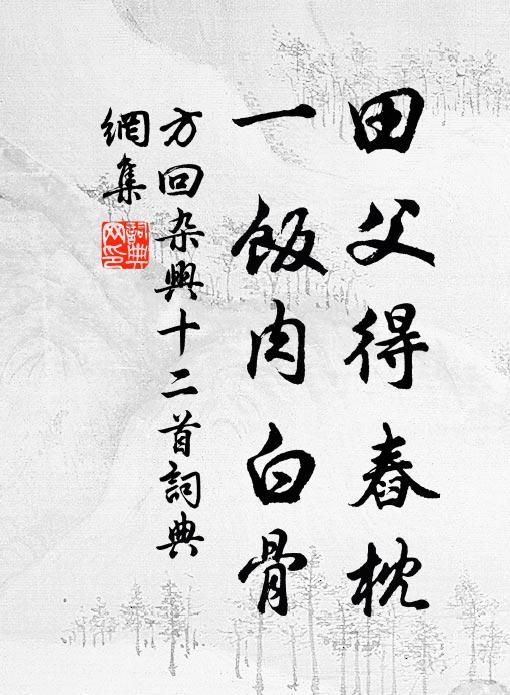 田父得舂枕
一飯肉白骨
方回杂興十二首詞典
網集
詞典
网印